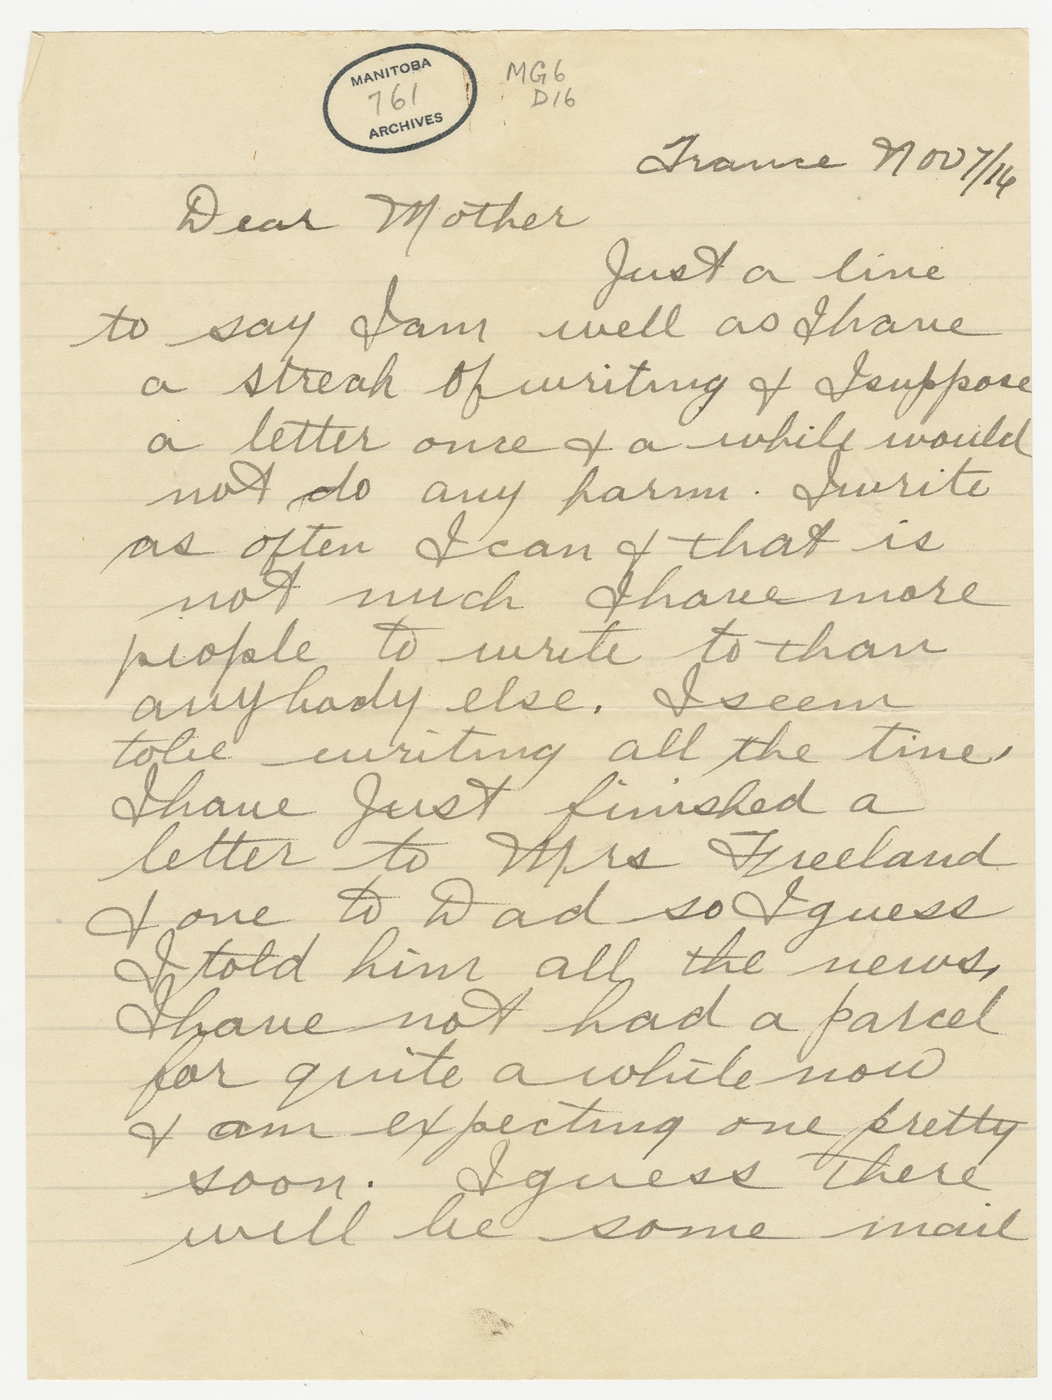 MANITOBA
761
ARCHIVES
MG6
D16
France Nov 7/16
Dear Mother
Just a line
to say I am well as I have
a streak of writing & I suppose
a letter once & a while would
not do any harm. I write
as often I can & that is
not much I have more
people to write to than
anybody else. I seem
to be writing all the time,
I have Just finished a
letter to Mrs Freeland
& one to Dad so I guess
I told him all the news,
I have not had a parcel
for quite a while now
& am expecting one pretty
soon. I guess there
will be some mail